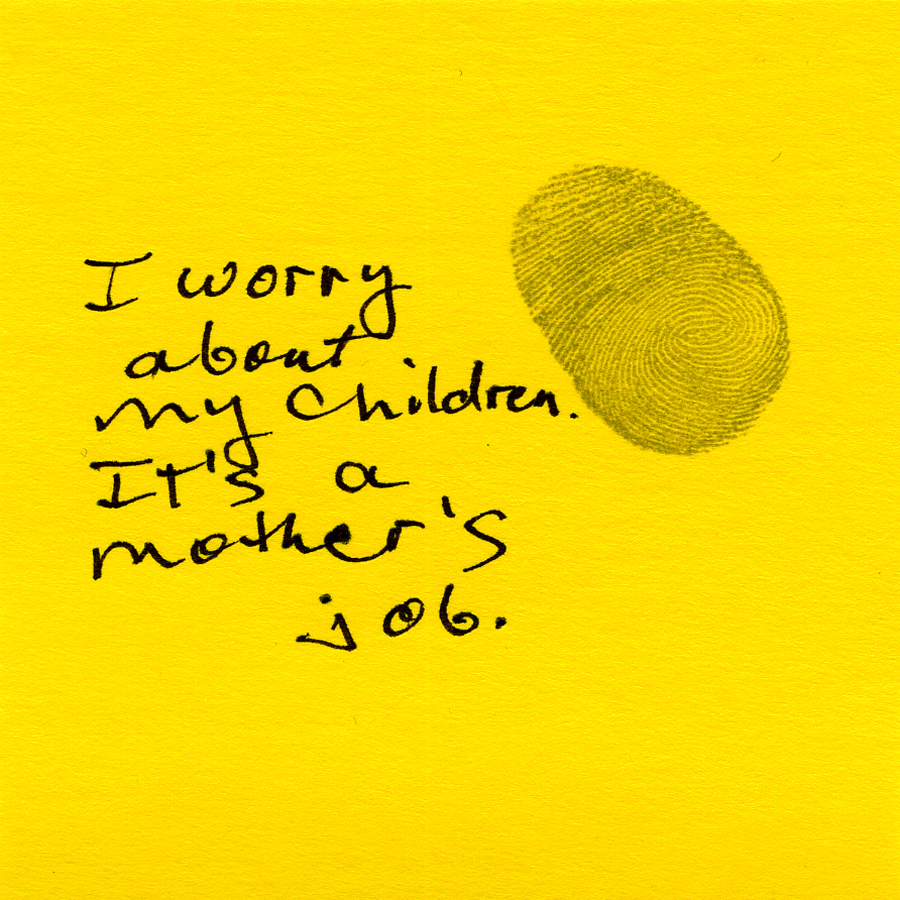 I worry
about
my children.
It's a
mother's
job.